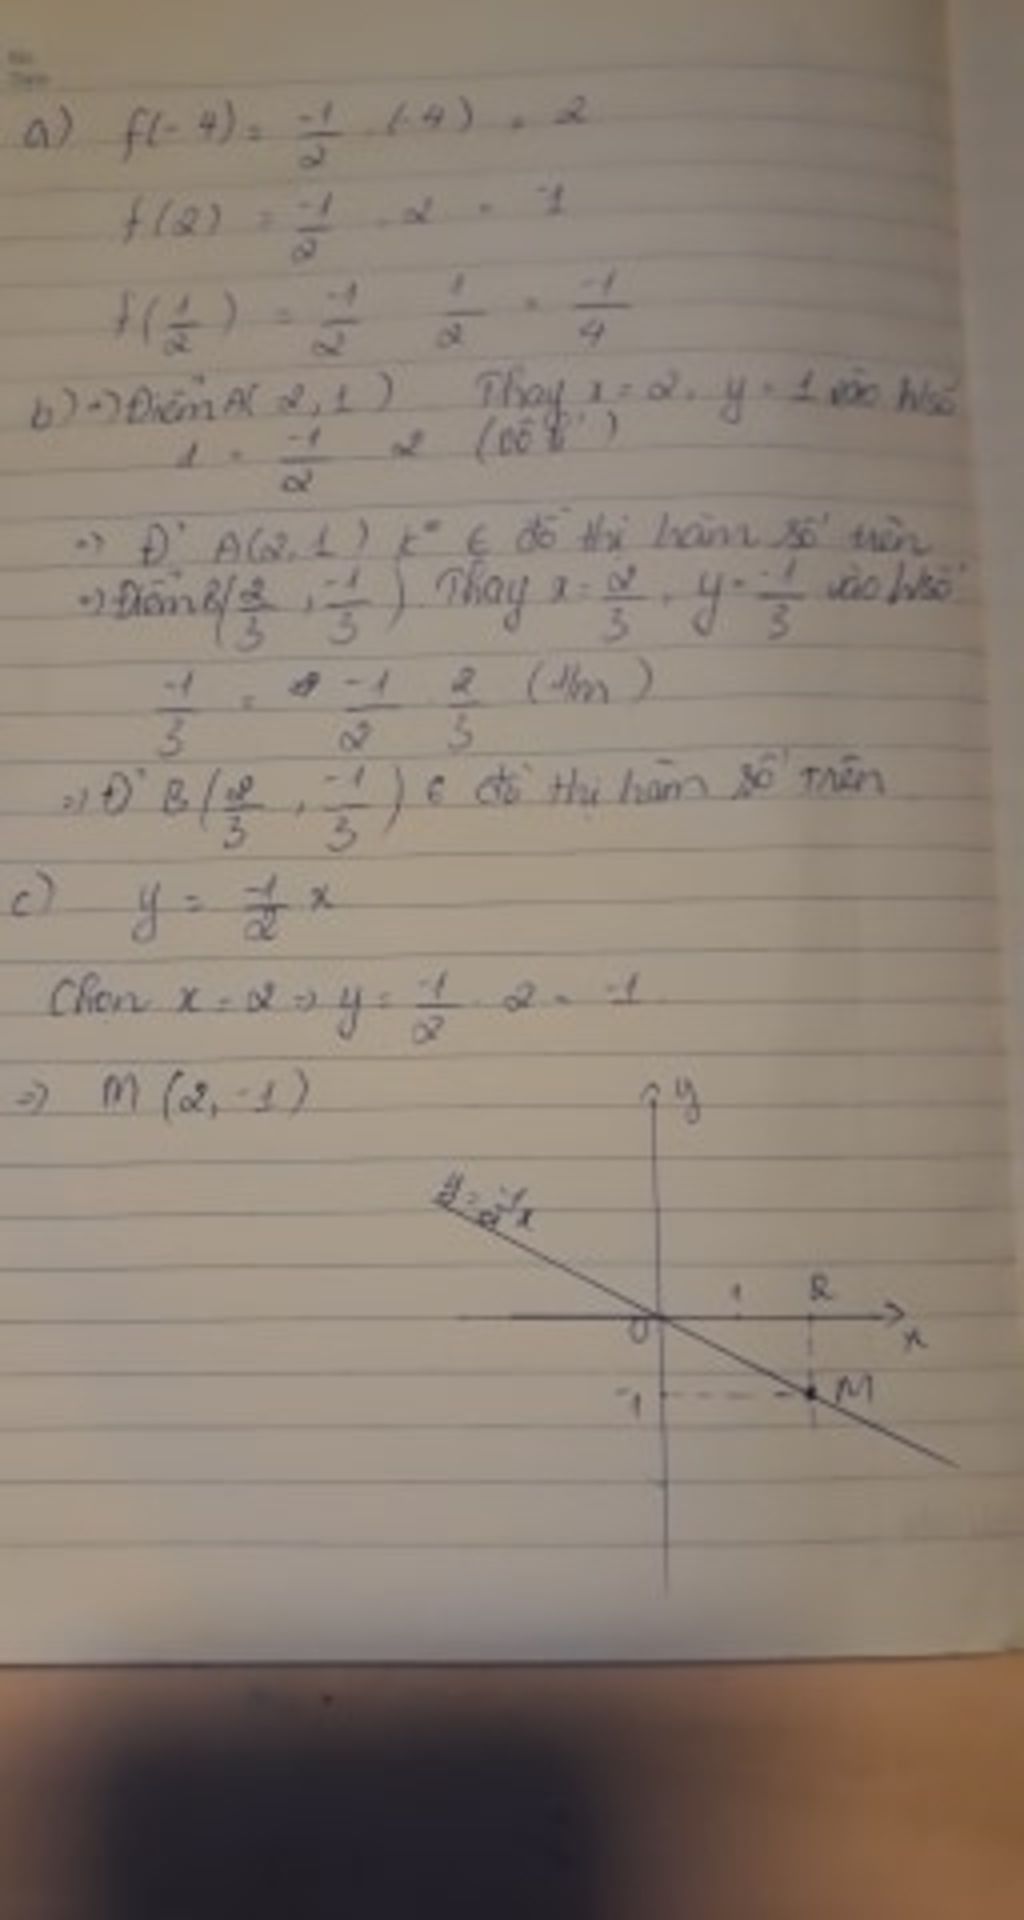 a) f(-4) = -1/2 . (-4) = 2
f(2) = -1/2 . 2 = -1
f(1/2) = -1/2 1/2 = -1/4
b) +) Điểm A(2,1) Thay x = 2, y = 1 vào h/số
1 = -1/2 2 (vô lí)
=> Đ' A(2,1) k° ∈ đồ thị hàm số trên
+) Điểm B(2/3, -1/3). Thay x = 2/3, y = -1/3 vào h/số
-1/3 = -1/2 . 2/3 (t/m)
=> Đ' B(2/3, -1/3) ∈ đồ thị hàm số trên
c) y = -1/2 x
Chọn x = 2 => y = -1/2 . 2 = -1
=> M (2, -1)
y
y = -1/2 x
1 2
O x
-1 M